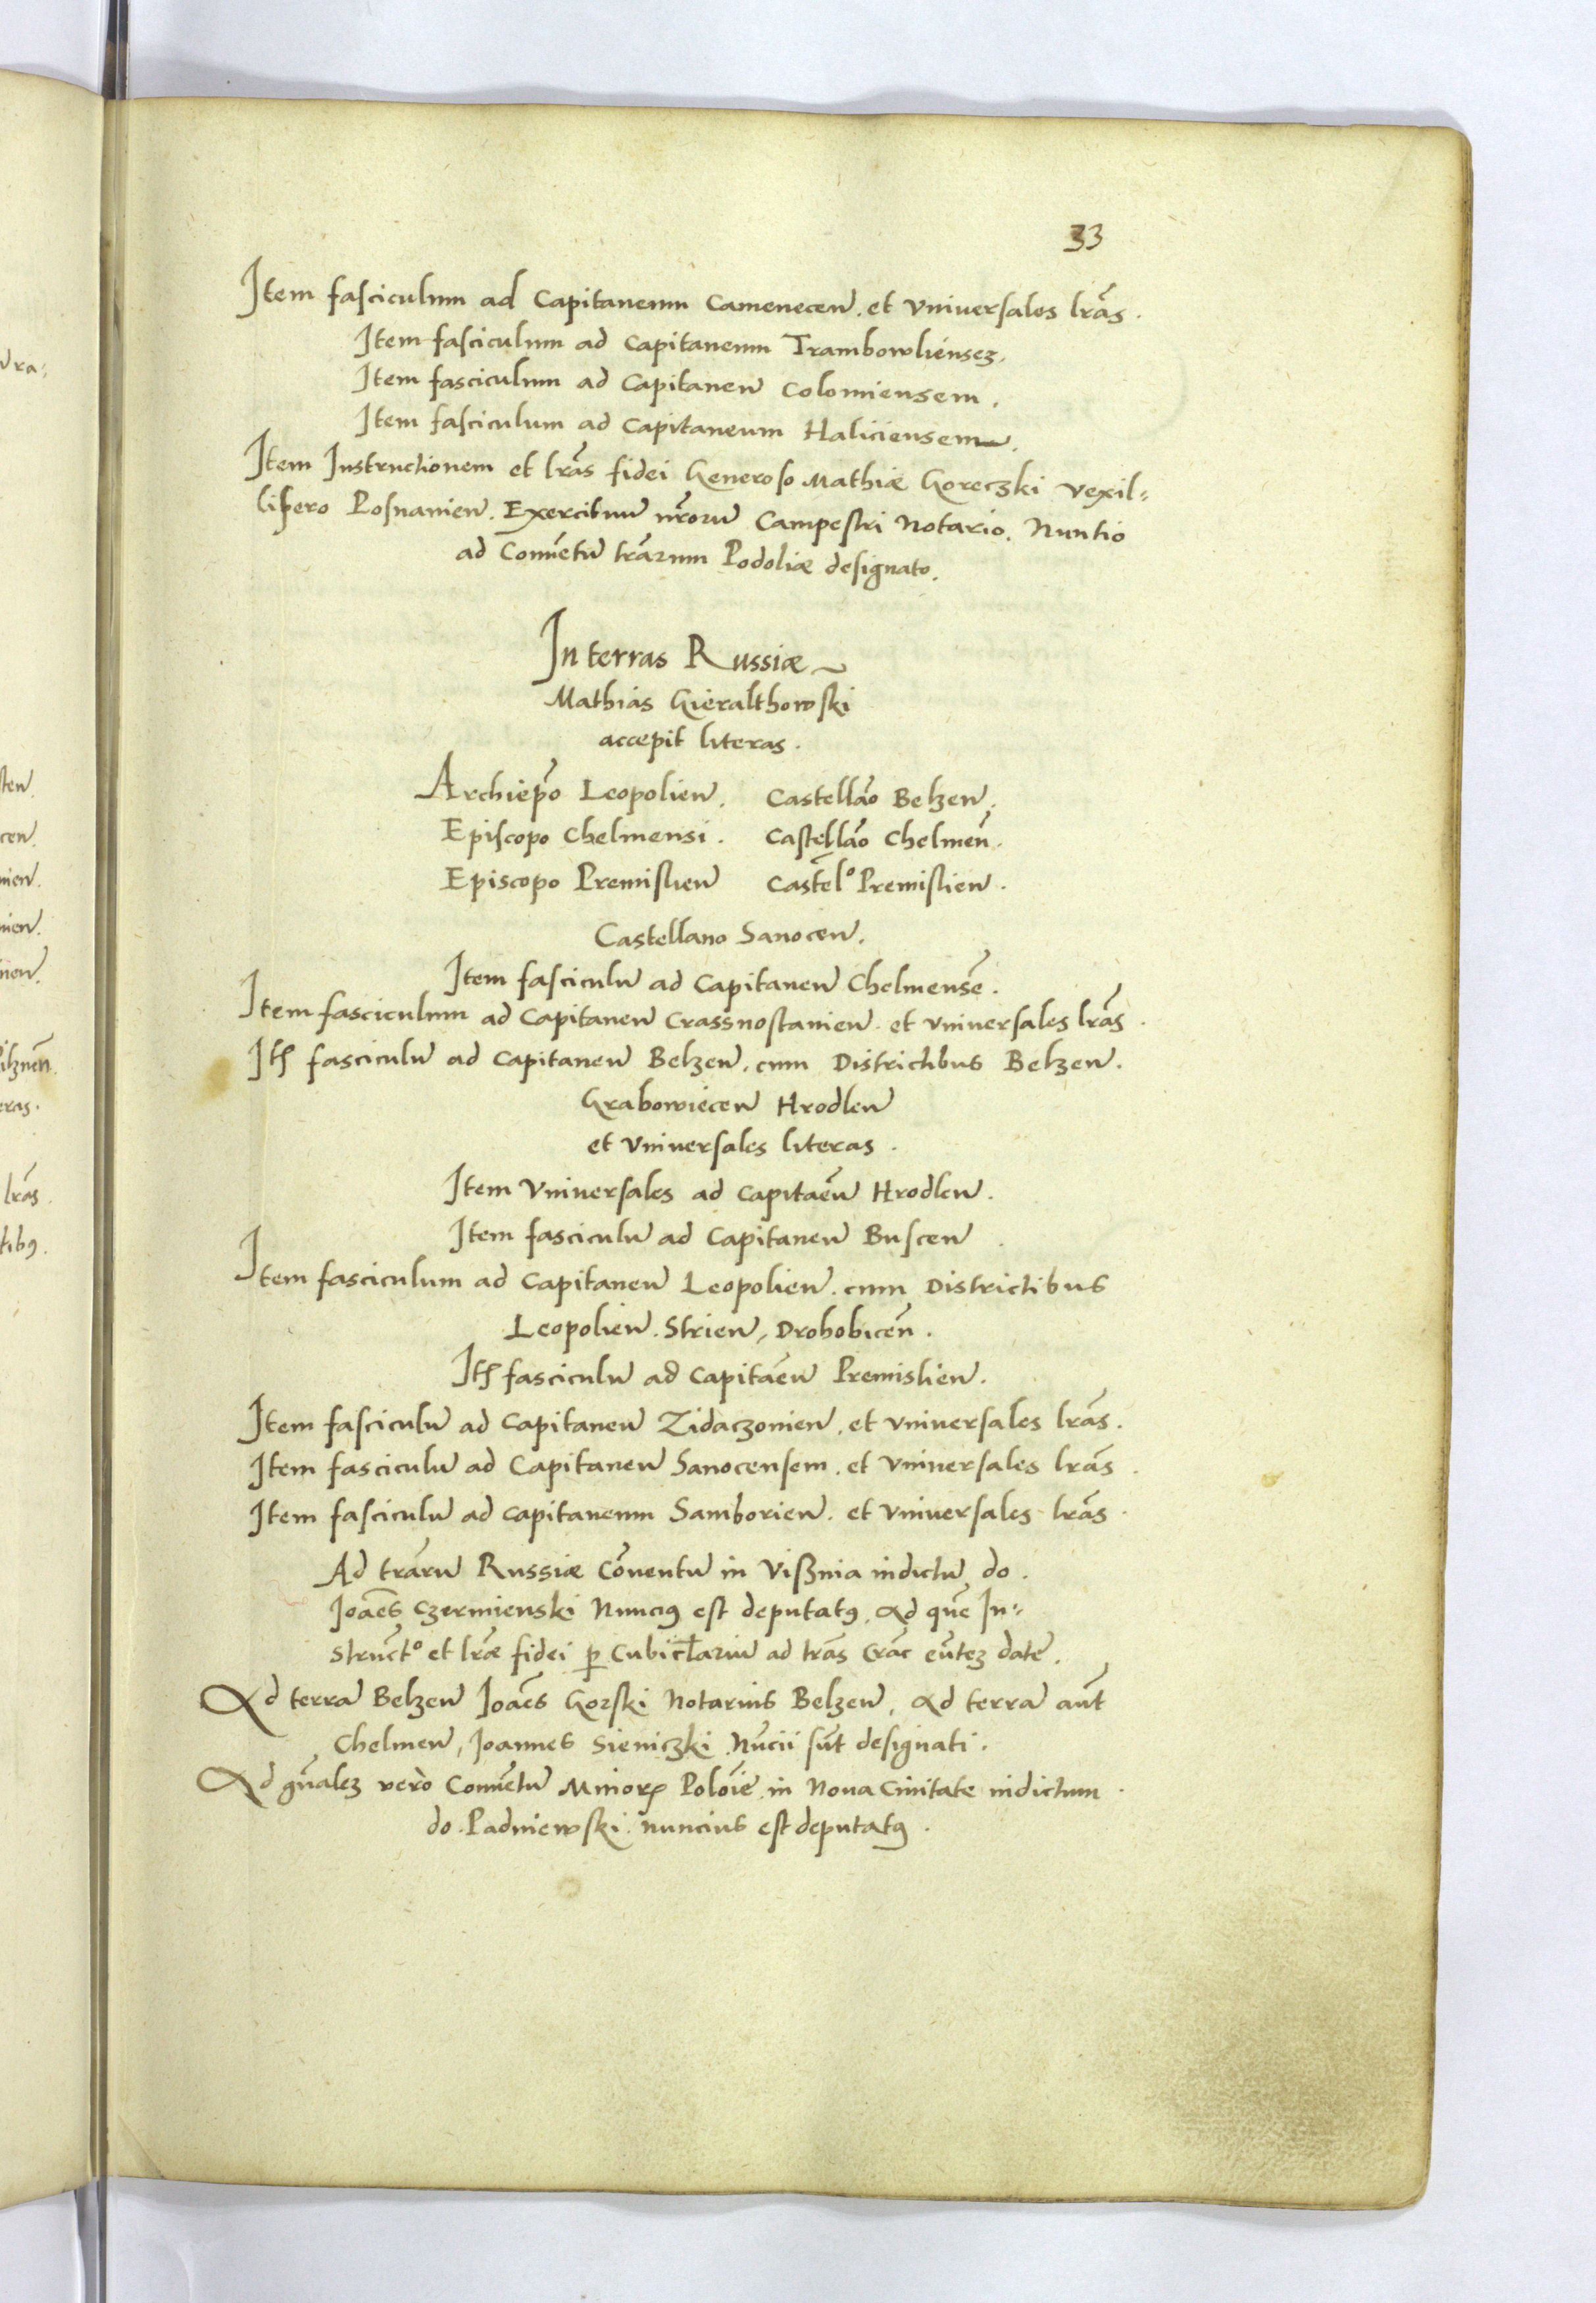 33
Item fasciculum ad Capitaneum Camenecen̄. et Vniuersales lrãs.
Item fasciculum ad Capitaneum Trambowliensez.
Item fasciculum ad Capitaneū Colomiensem.
Item fasciculum ad Capitaneum Haliciensem.
Item Instructionem et lrãs fidei Generoso Mathiæ Goreczki Vexil=
lifero Posnanien̄. Exercituū nrõrū Campestri Notario. Nuntio
ad Conuẽtū trãrum Podoliæ designato.
In terras Russiæ
Mathias Gieralthowski
accepit literas.
Archiep̃o Leopolien̄. Castellão Belzen̄.
Episcopo Chelmensi. Castellão Chelmen̄.
Episcopo Premislien̄ Castel̃o Premislien̄.
Castellano Sanocen̄.
Item fasciculū ad Capitaneū Chelmensẽ.
Item fasciculum ad Capitaneū Crassnostanien̄. et vniuersales lrãs.
Itꝭ fasciculū ad Capitaneū Belzen̄. cum Districtibus Belzen̄.
Grabowiecen̄ Hrodlen̄
et Vniuersales literas.
Item Vniuersales ad Capitãeū Hrodlen̄.
Item fasciculū ad Capitaneū Buscen̄
Item fasciculum ad Capitaneū Leopolien̄. cum Districtibus
Leopolien̄. Strien̄, Drohobicen̄.
Itꝭ fasciculū ad Capitãeū Premislien̄.
Item fasciculū ad Capitaneū Zidaczonien̄. et vniuersales lrãs.
Item fasciculū ad Capitaneū Sanocensem. et Vniuersales lrãs.
Item fasciculū ad Capitaneum Samborien̄. et Vniuersales lrãs.
Ad trãrū Russiæ Cõuentū in Vißnia indictū do.
Ioães Czermienski Nunciꝰ est deputatꝰ. Ad quẽ In=
struct̃o et lrãe fidei ꝑ Cubicl̃ariū ad trãs Crãc eũtez datẽ.
Ad terrā Belzen̄ Ioães Gorski Notarius Belzen̄, Ad terrā aũt
Chelmen̄, Joannes Sieniczki Nũcii sũt designati.
Ad gñalez verò Conuẽtū Minorꝭ Polõie in Noua Ciuitate indictum
do. Padniewski nuncius est deputatꝰ.